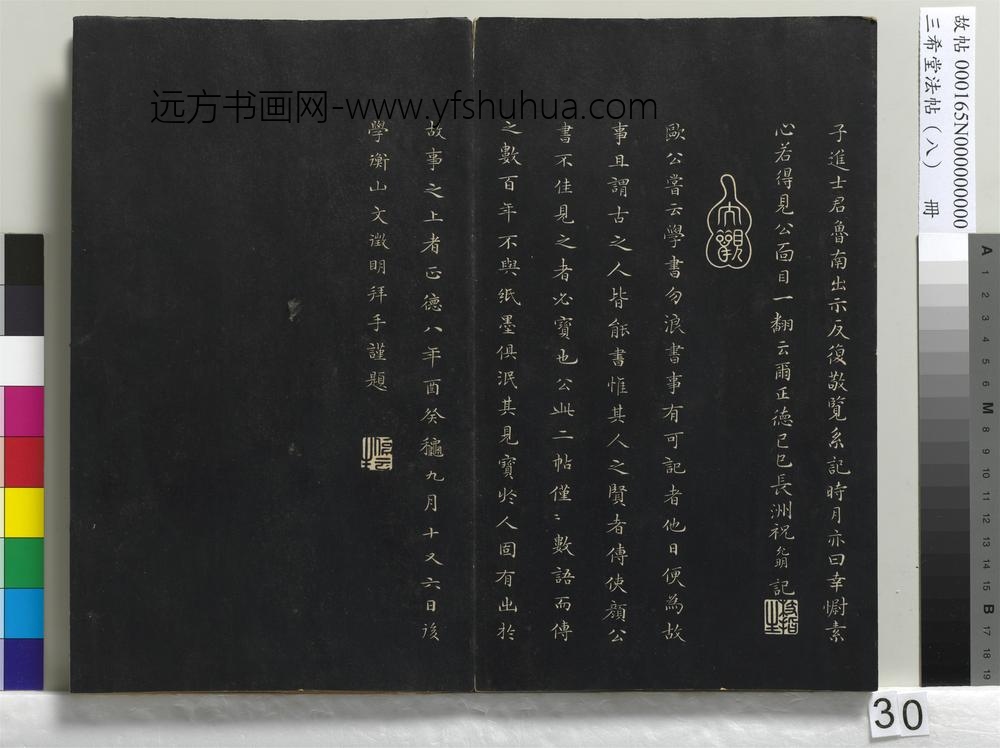 子進士君魯南出示反復敬覽系記時月亦曰幸慰素
心若得見公面目一翻云爾正德己巳長洲祝允明記
大觀
歐公嘗云學書勿浪書事有可記者他日便為故
事且謂古之人皆能書惟其人之賢者傳使顏公
書不佳見之者必寶也公此二帖僅〻數語而傳
之數百年不與紙墨俱泯其見寶於人固有出於
故事之上者正德八年酉癸龝九月十又六日後
學衡山文徵明拜手謹題
远方书画网-www.yfshuhua.com
故帖 000165N000000000
三希堂法帖(八) 冊
A 1 2 3 4 5 6 M 8 9 10 11 12 13 14 15 B 17 18 19
30